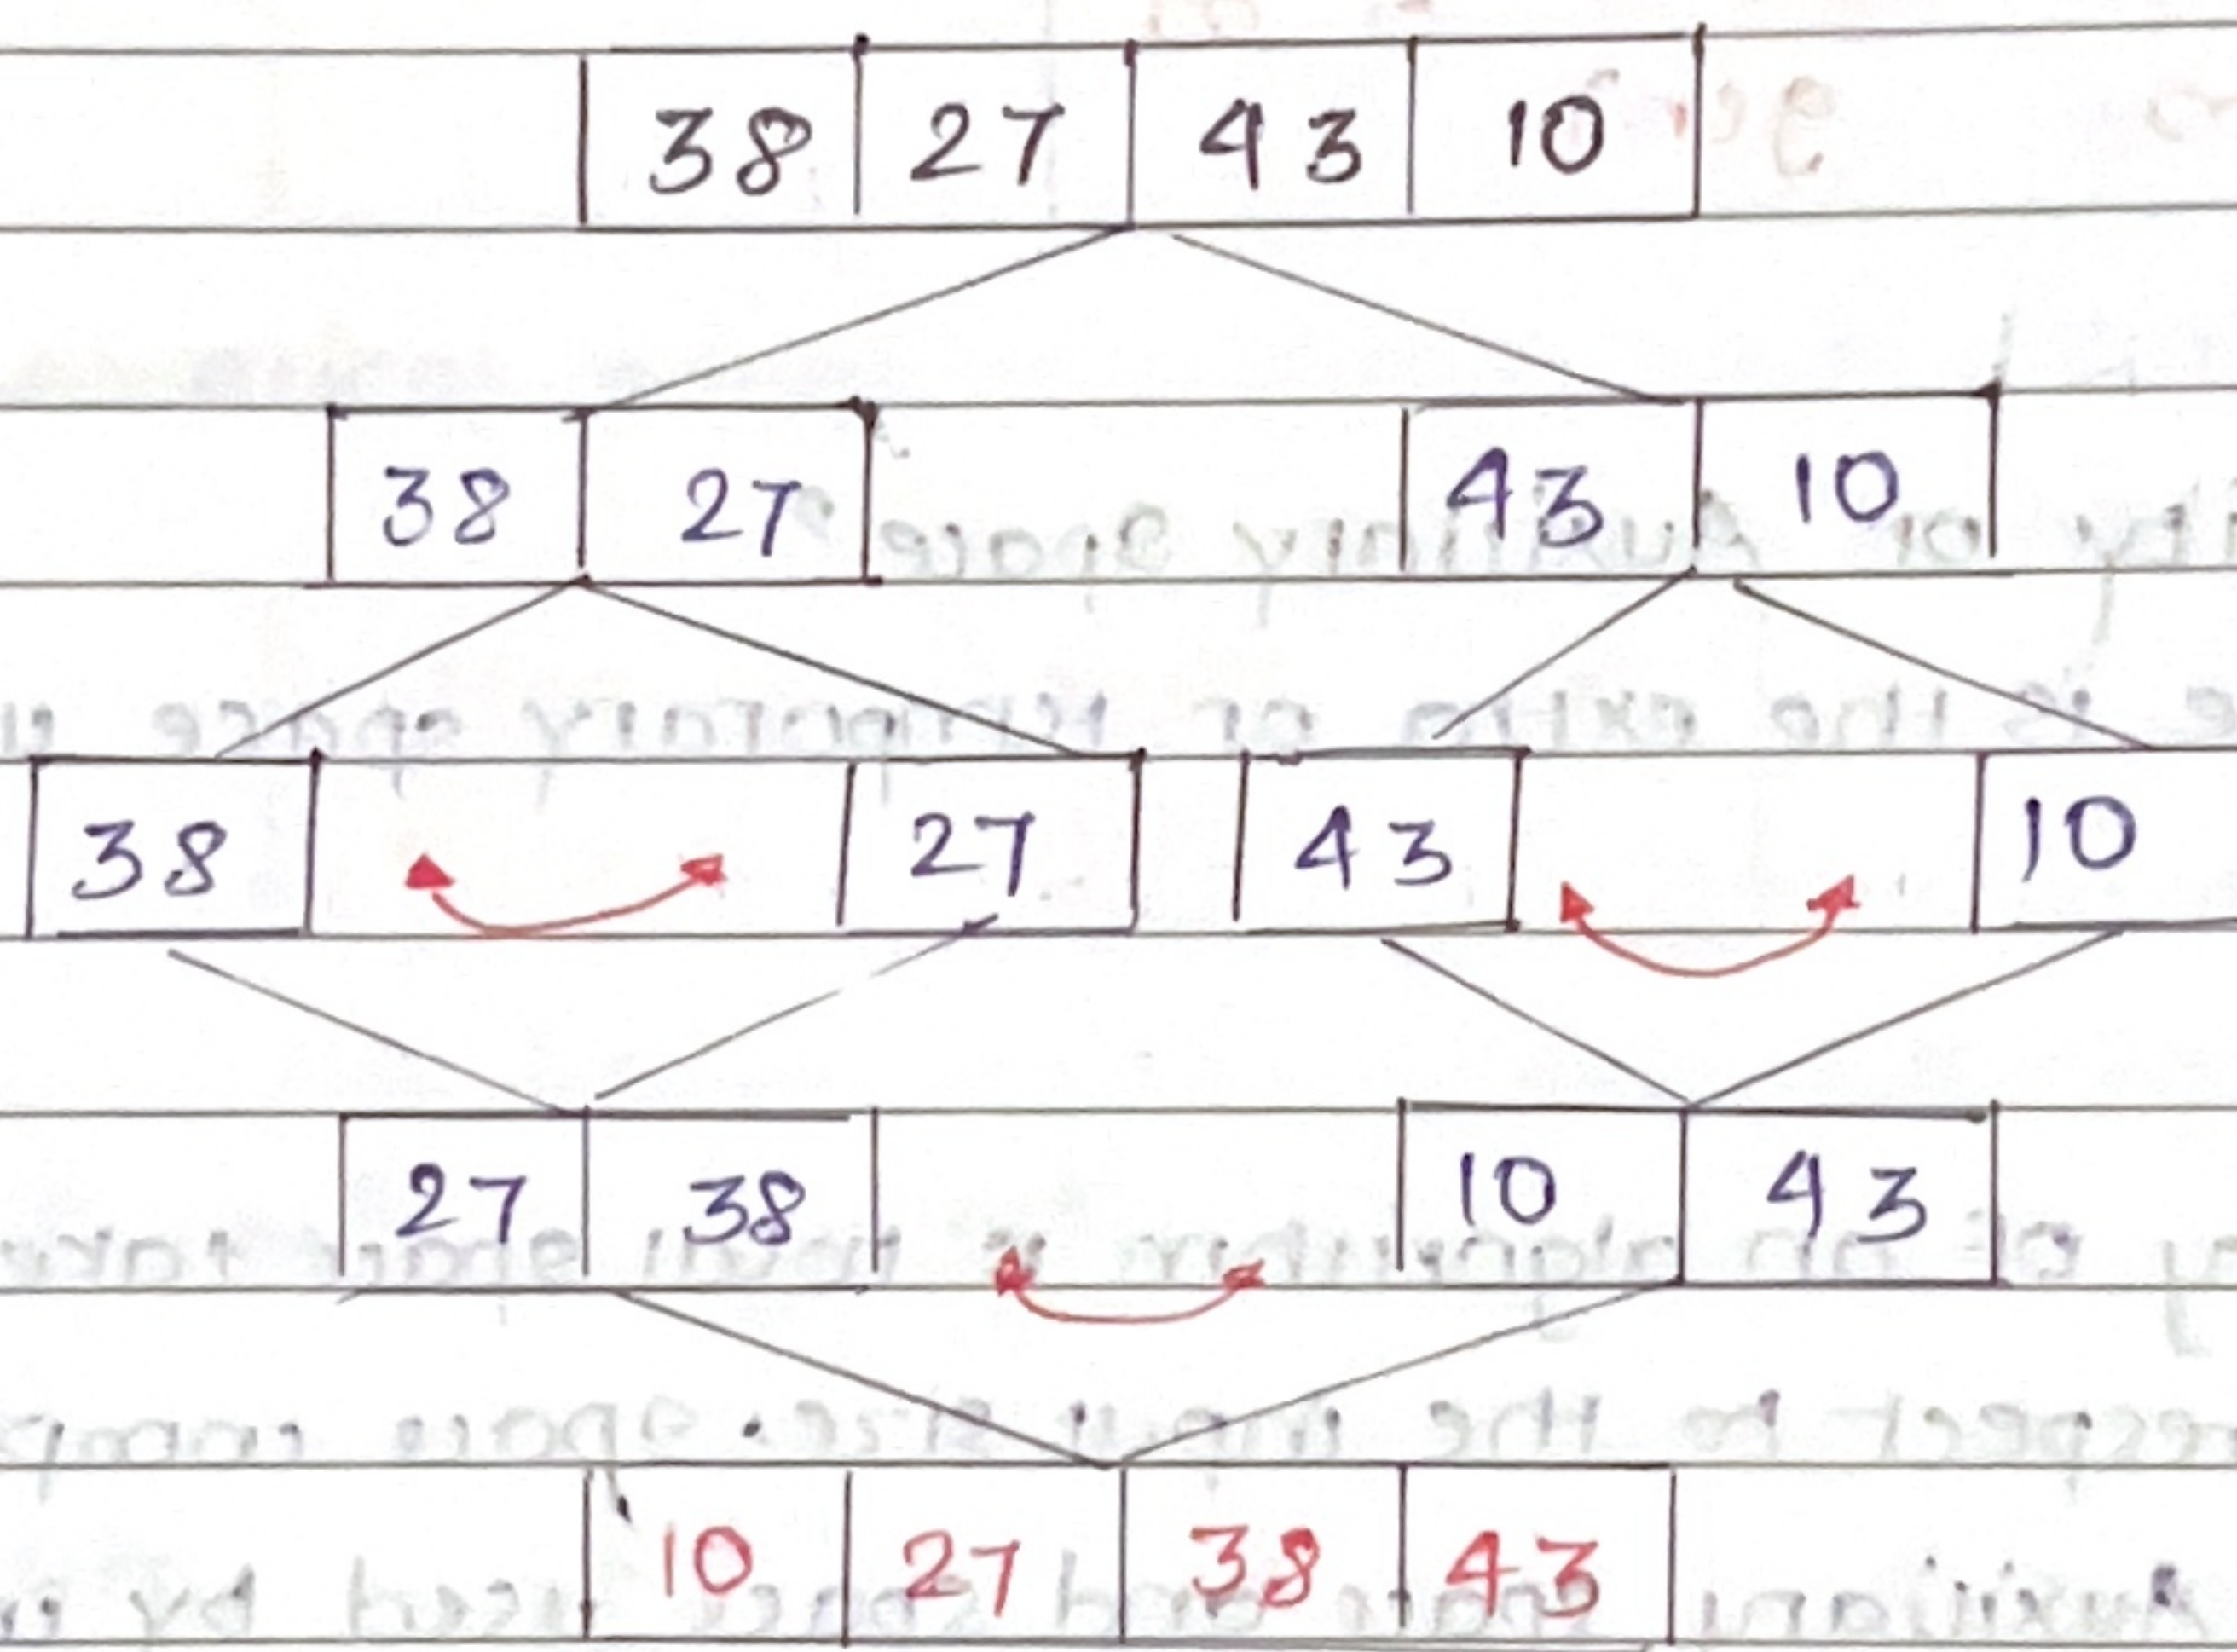 38 27 43 10
38 27 43 10
38 27 43 10
27 38 10 43
10 27 38 43